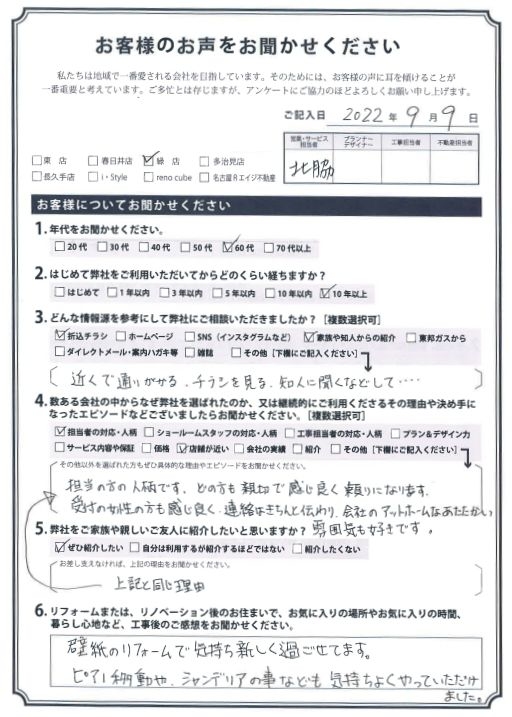 お客様のお声をお聞かせください
私たちは地域で一番愛される会社を目指しています。そのためには、お客様の声に耳を傾けることが
一番重要と考えています。ご多忙とは存じますが、アンケートにご協力のほどよろしくお願い申し上げます。
ご記入日 2022年 9月 9日
営業・サービス担当者 プランナーデザイナー 工事担当者 不動産担当者
北脇
□東 店 □春日井店 ☑緑 店 □多治見店
□長久手店 □i・Style □reno cube □名古屋Rエイジ不動産
お客様についてお聞かせください
1.年代をお聞かせください。
□20代 □30代 □40代 □50代 ☑60代 □70代以上
2.はじめて弊社をご利用いただいてからどのくらい経ちますか？
□はじめて □1年以内 □3年以内 □5年以内 □10年以内 ☑10年以上
3.どんな情報源を参考にして弊社にご相談いただきましたか？［複数選択可］
☑折込チラシ □ホームページ □SNS（インスタグラムなど） ☑家族や知人からの紹介 □東邦ガスから
□ダイレクトメール・案内ハガキ等 □雑誌 □その他［下欄にご記入ください］
近くで通りかかる、チラシを見る、知人に聞くなどして‥‥
4.数ある会社の中からなぜ弊社を選ばれたのか、又は継続的にご利用くださるその理由や決め手に
なったエピソードなどございましたらお聞かせください。［複数選択可］
☑担当者の対応・人柄 □ショールームスタッフの対応・人柄 □工事担当者の対応・人柄 □プラン＆デザイン力
□サービス内容や保証 □価格 ☑店舗が近い □会社の実績 □紹介 □その他［下欄にご記入ください］
その他以外を選ばれた方もぜひ具体的な理由やエピソードをお聞かせください。
担当の方の人柄です、どの方も親切で感じ良く頼りになります。
受付の女性の方も感じ良く、連絡はきちんと伝わり、会社のアットホームなあたたかい
雰囲気も好きです。
5.弊社をご家族や親しいご友人に紹介したいと思いますか？
☑ぜひ紹介したい □自分は利用するが紹介するほどではない □紹介したくない
お差し支えなければ、上記の理由をお聞かせください。
上記と同じ理由
6.リフォームまたは、リノベーション後のお住まいで、お気に入りの場所やお気に入りの時間、
暮らし心地など、工事後のご感想をお聞かせください。
壁紙のリフォームで気持ち新しく過ごせてます。
ピアノ移動や、シャンデリアの事なども気持ちよくやっていただけ
ました。